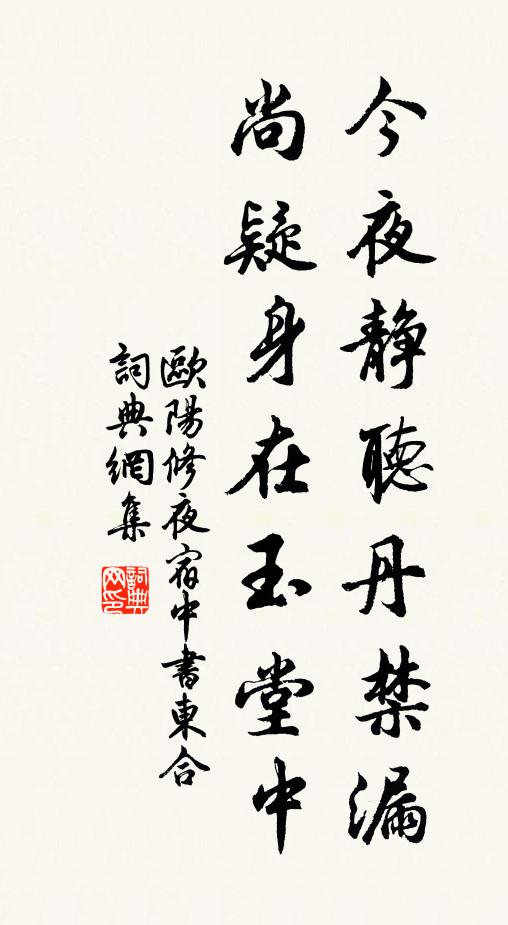 今夜静聽丹禁漏
尚疑身在玉堂中
歐陽修夜宿中書東合
詞典網集
詞典网印